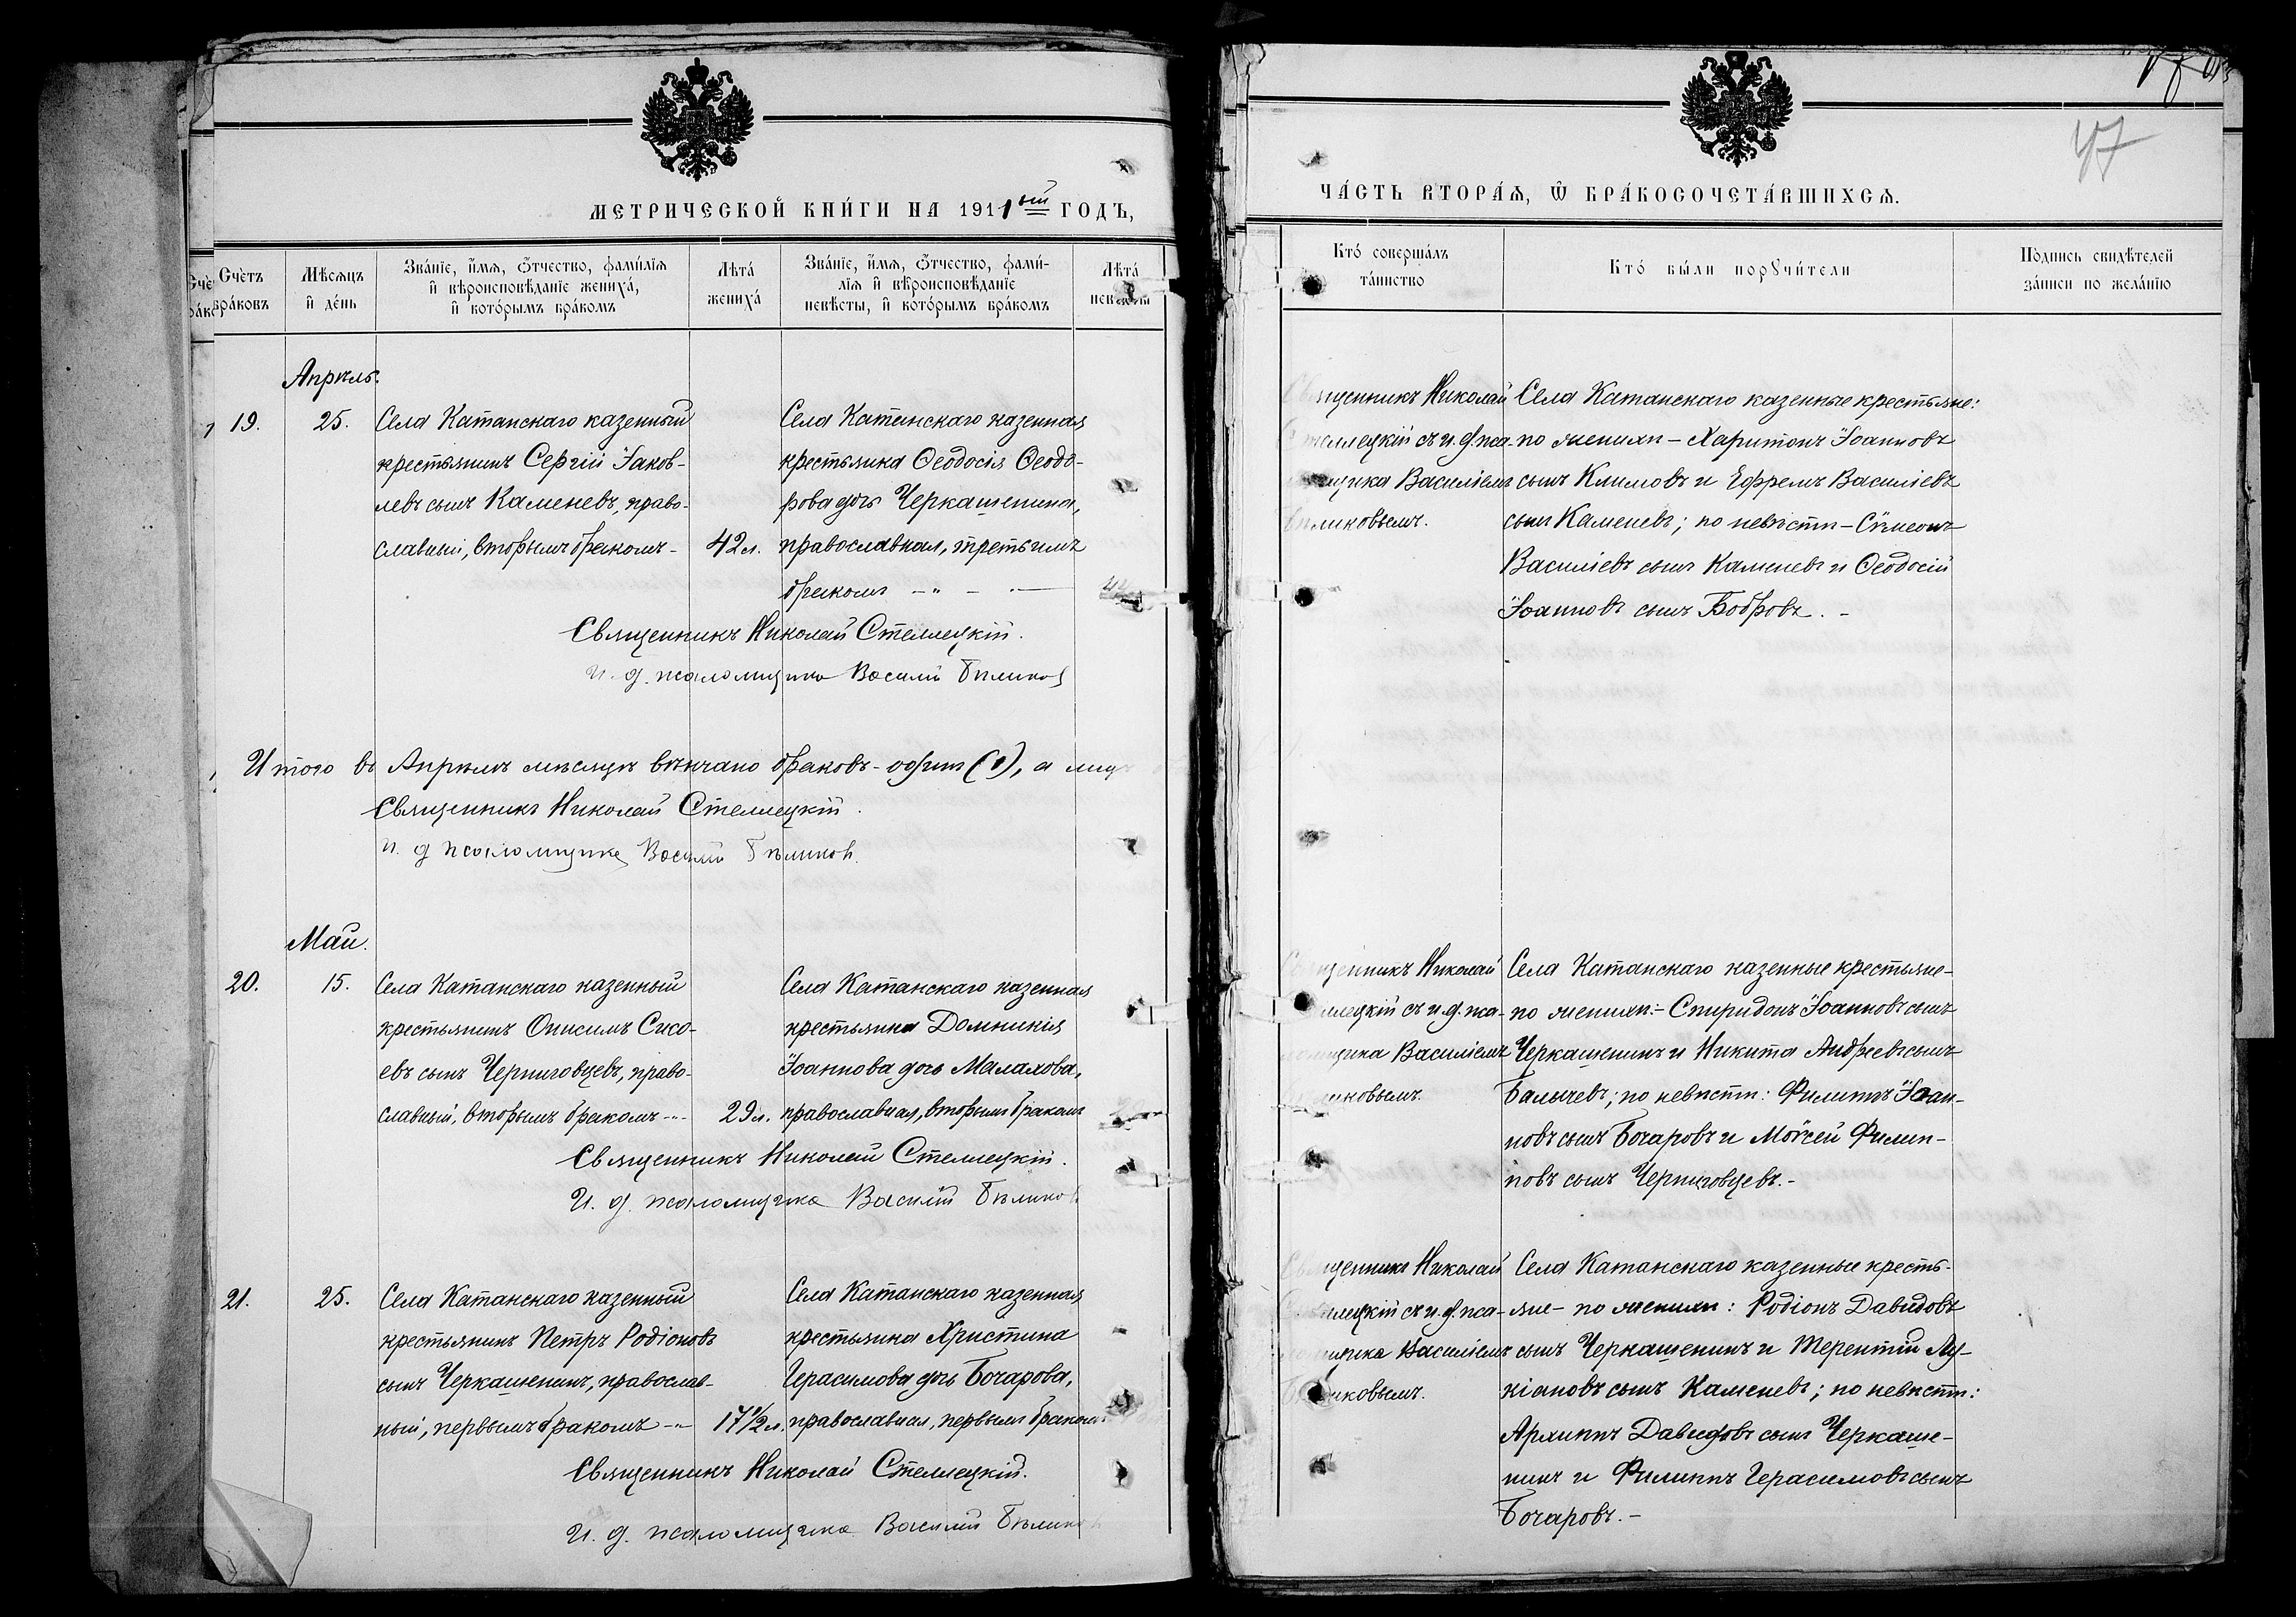 МЕТРИЧЕСКОЙ КНИ́ГИ НА 1911ый ГОДЪ,
Сче́тъ бра́ковъ
Мѣ́сяцъ и҆ де́нь
Зва́нїе, и҆́мя, ѻ҆́тчество, фами́лїя и҆ вѣроисповѣ́данїе жениха́, и҆ кото́рымъ бра́комъ
Лѣ́та жениха́
Зва́нїе, и҆́мя, ѻ҆́тчество, фами́лїя и҆ вѣроисповѣ́данїе невѣ́сты, и҆ кото́рымъ бра́комъ
Лѣ́та
Апрѣль.
19.
25.
Села Катанскаго казенный
крестьянинъ Сергій Іаков-
левъ сынъ Каменевъ, право-
славный, вторымъ бракомъ -
42 л.
Села Катанскаго казенная
крестьянка Ѳеодосія Ѳеодо-
рова дочь Черкашенина,
православная, третьимъ
бракомъ
Священникъ Николай Стеллецкій.
И. д. псаломщика Василій Бѣликов
Итого въ Апрѣлѣ мѣсяцѣ вѣнчано браковъ - одинъ (1), а лиц
Священникъ Николай Стеллецкій.
И. д. псаломщика Василій Бѣликов.
Май.
20.
15.
Села Катанскаго казенный
крестьянинъ Онисимъ Сисо-
евъ сынъ Черниговцевъ, право-
славный, вторымъ бракомъ
29 л.
Села Катанскаго казенная
крестьянка Домникія
Іоаннова дочь Малахова,
православная, вторымъ бракомъ
Священникъ Николай Стеллецкій.
И. д. псаломщика Василій Бѣликов
21.
25.
Села Катанскаго казенный
крестьянинъ Петръ Родіоновъ
сынъ Черкашенинъ, православ-
ный, первымъ бракомъ
17½ л.
Села Катанскаго казенная
крестьянка Христина
Герасимова дочь Бочарова,
православная, первымъ бракомъ
Священникъ Николай Стеллецкій.
И. д. псаломщика Василій Бѣликов
47
ЧА́СТЬ ВТОРА́Я, Ѡ҆ БРАКОСОЧЕТА́ВШИХСЯ.
Кто́ соверша́лъ та́инство
Кто́ бы́ли порꙋчи́тели
По́дпись свидѣ́телей за́писи по жела́нїю
Священникъ Николай
Стеллецкій съ и. д. пса-
ломщика Василіемъ
Бѣликовымъ.
Села Катанскаго казенные крестьяне:
по женихѣ - Харитонъ Іоанновъ
сынъ Климовъ и Ефремъ Василіевъ
сынъ Каменевъ; по невѣстѣ - Сѵмеонъ
Василіевъ сынъ Каменевъ и Ѳеодосій
Іоанновъ сынъ Бобровъ. -
Священникъ Николай
Стеллецкій съ и. д. пса-
ломщика Василіемъ
Бѣликовымъ.
Села Катанскаго казенные крестьяне -
по женихѣ: - Спиридонъ Іоанновъ сынъ
Черкашенинъ и Никита Андреевъ сынъ
Балычевъ; по невѣстѣ: Филиппъ Іоан-
новъ сынъ Бочаровъ и Моѵсей Филип-
повъ сынъ Черниговцевъ. -
Священникъ Николай
Стеллецкій съ и. д. пса-
ломщика Василіемъ
Бѣликовымъ.
Села Катанскаго казенные кресть-
яне - по женихѣ: Родіонъ Давидовъ
сынъ Черкашенинъ и Терентій Лу-
кіановъ сынъ Каменевъ; по невѣстѣ:
Архипъ Давидовъ сынъ Черкаше-
нинъ и Филиппъ Герасимовъ сынъ
Бочаровъ. -